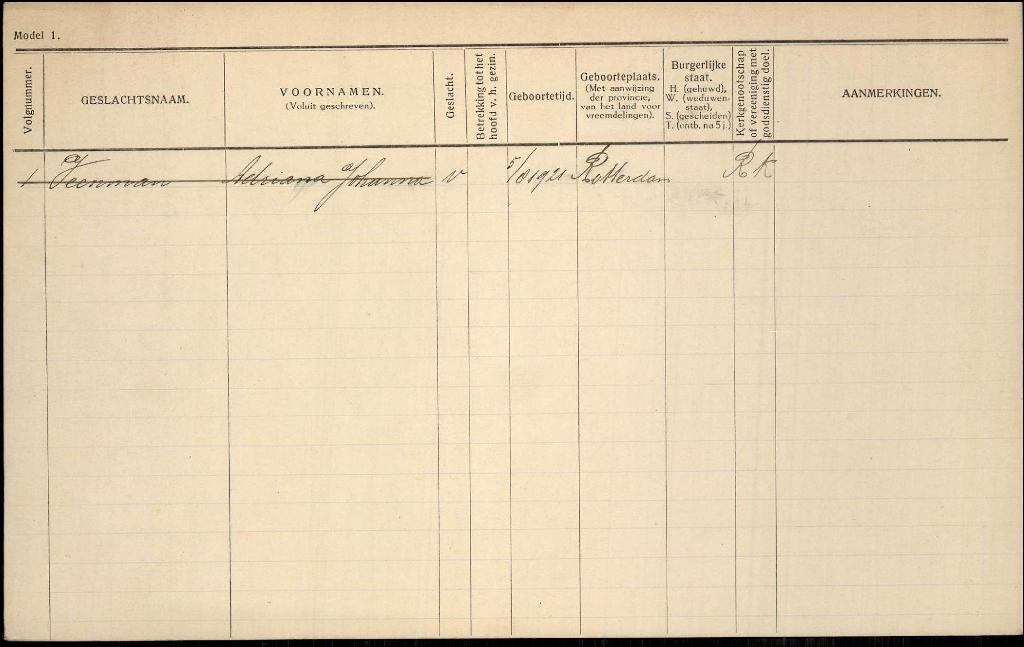 Model 1.
Volgnummer.
GESLACHTSNAAM.
VOORNAMEN.
(Voluit geschreven).
Geslacht.
Betrekking tot het
hoofd v. h. gezin.
Geboortetijd.
Geboorteplaats.
(Met aanwijzing
der provincie,
van het land voor
vreemdelingen).
Burgerlijke
staat.
H. (gehuwd),
W. (weduwen-
staat),
S. (gescheiden)
T. (ontb. na 5 j.)
Kerkgenootschap
of vereeniging met
godsdienstig doel.
AANMERKINGEN.
1 Veenman Adriana Johanna v 5/8 1921 Rotterdam R K